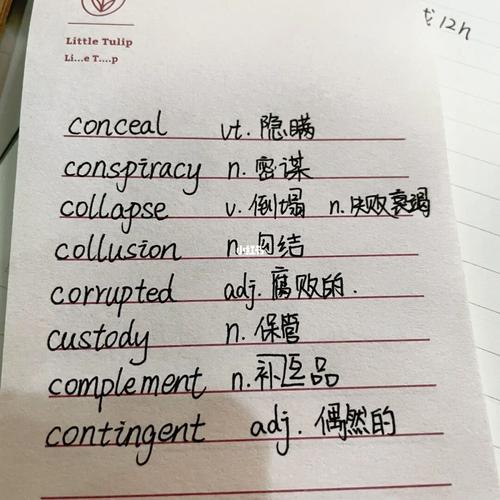 Little Tulip
Li...e T....p
conceal vt. 隐瞒
conspiracy n. 密谋
collapse v. 倒塌 n. 失败衰竭
collusion n. 勾结
corrupted adj. 腐败的.
custody n. 保管
complement n. 补足品
contingent adj. 偶然的
小红书